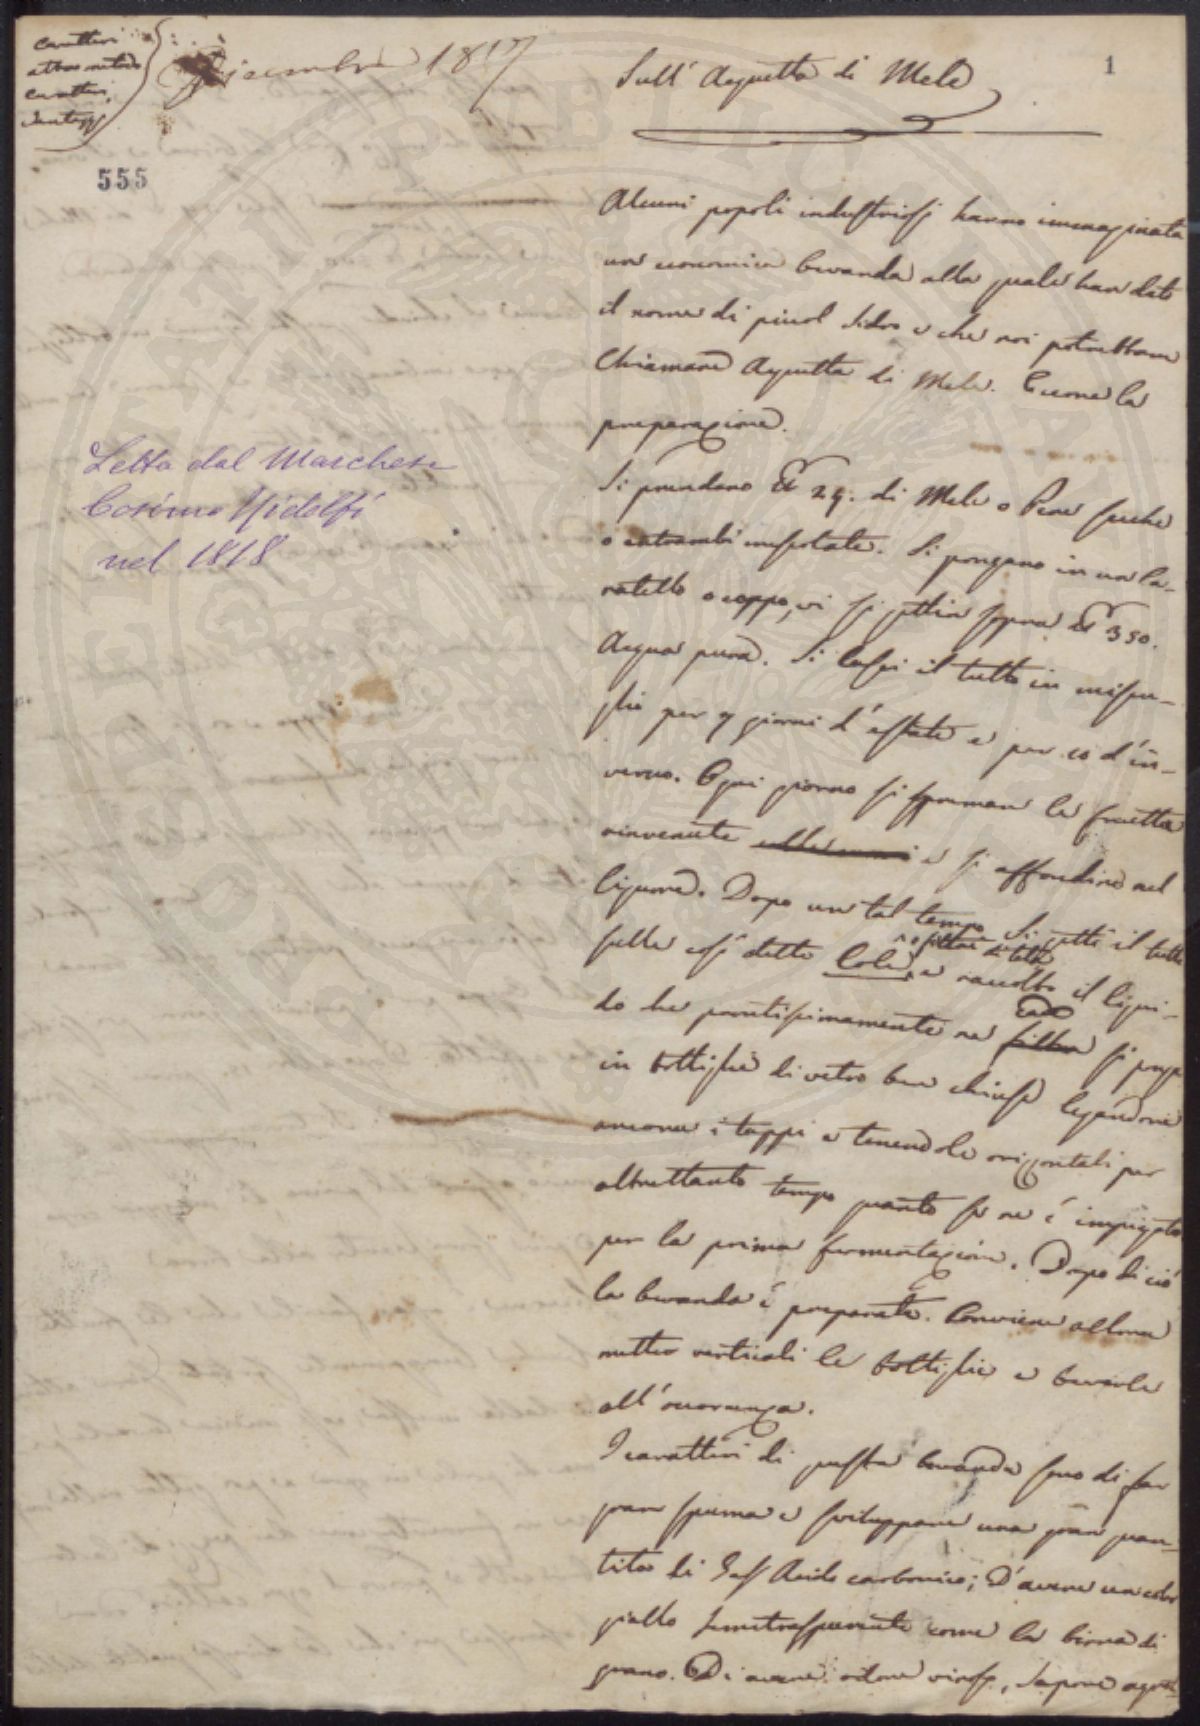 Caratteri
altro metodo
caratteri
vantaggi
Dicembre 1817
Sull' Acquetta di Mele
1
555
Letta dal Marchese
Cosimo Ridolfi
nel 1818
Alcuni popoli industriosi hanno immaginata
un economica bevanda alla quale han dato
il nome di picol Sidro e che noi potrebbamo
chiamare Acquetta di Mele. Eccone la
preparazione.
Si prendano 24. di Mele o Pere secche
o entrambi mescolate. Si pongano in un ca-
ratello o coppo, vi si getti sopra 350.
Acqua pura. Si lasci il tutto in mescu-
glio per 7 giorni d'estate e per 10 d'in-
verno. Ogni giorno si sprema le frutta
rinvenute colle mani e si affondino nel
liquore. Dopo un tal tempo Si getti il tutto
sulle così dette Cola, e raccolto il liqui-
o filtro di tela
do che prontissimamente ne filtra si ponga
cade
in bottiglie di vetro ben chiuse legandone
ancora i tappi e tenendole orizzontali per
altrettanto tempo quanto se ne è impiegato
per la prima fermentazione. Dopo di ciò
la bevanda è preparata. Conviene allora
metter verticali le bottiglie e beverle
all'occorrenza.
I caratteri di questa bevanda sono di far
gran spuma e sviluppare una gran quan-
tità di Gas Acido carbonico; D'avere un color
giallo semitrasparente come la birra di
grano. Di avere odore vinoso, sapore agret-